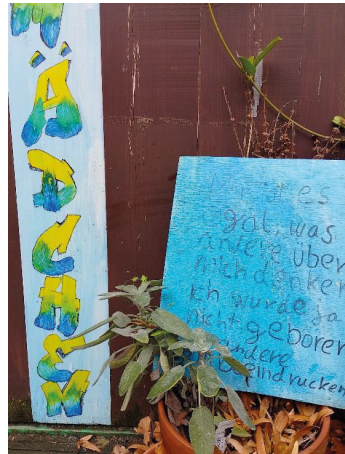 MÄDCHEN
ist es
egal, was
andere über
mich denken
Ich wurde ja
nicht geboren
andere
beeindrucken